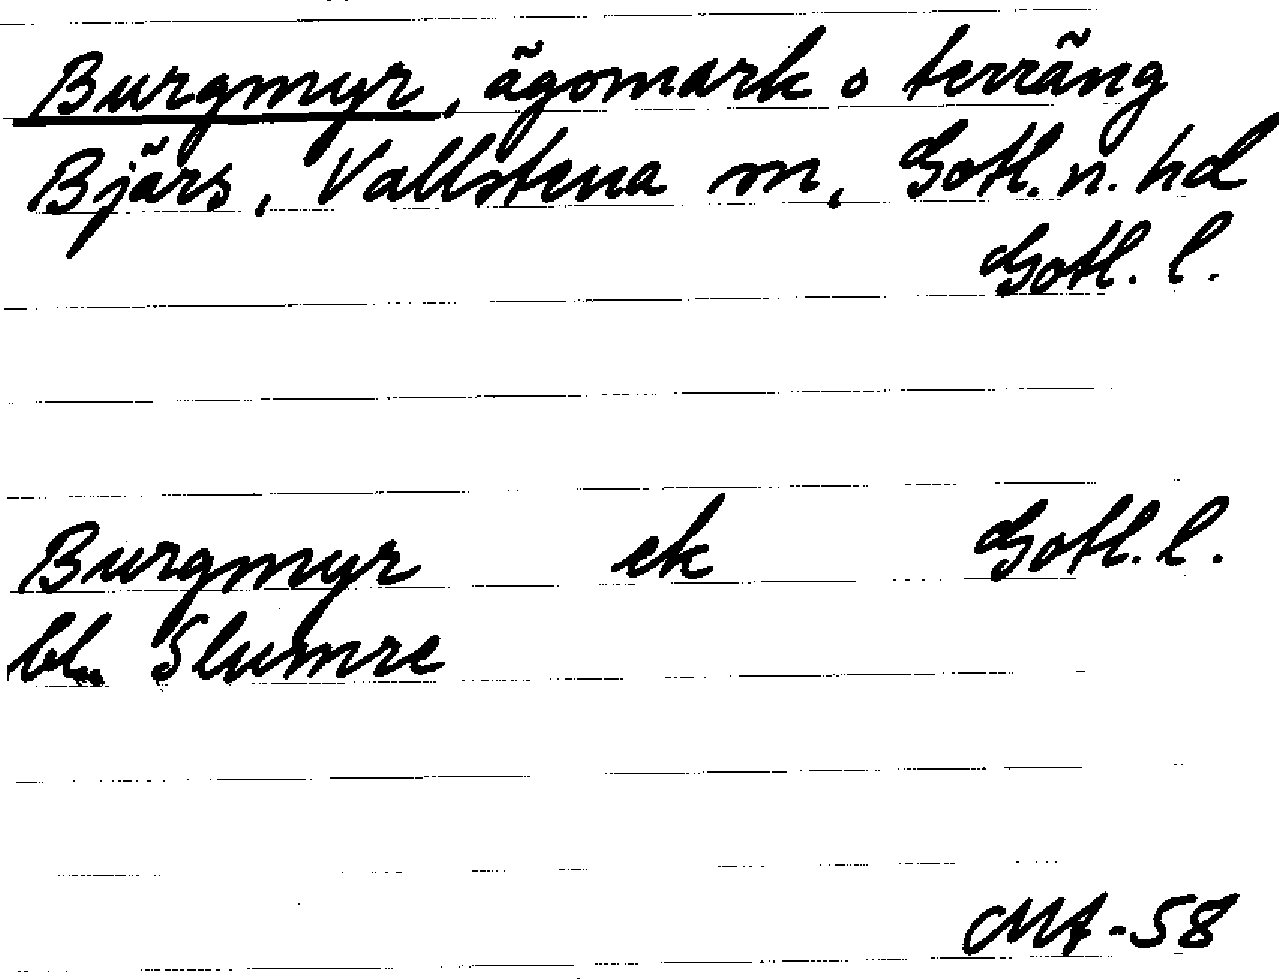 Burgmyr, ägomark o terräng
Bjärs, Vallstena sn, Gotl. n. hd
Gotl. l.
Burgmyr ek Gotl. l.
bl. Slumre
MA-58